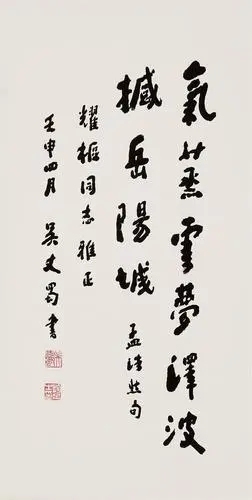 氣蒸雲夢澤波
撼岳陽城 孟浩然句
耀樞同志雅正
壬申四月 吴丈蜀書